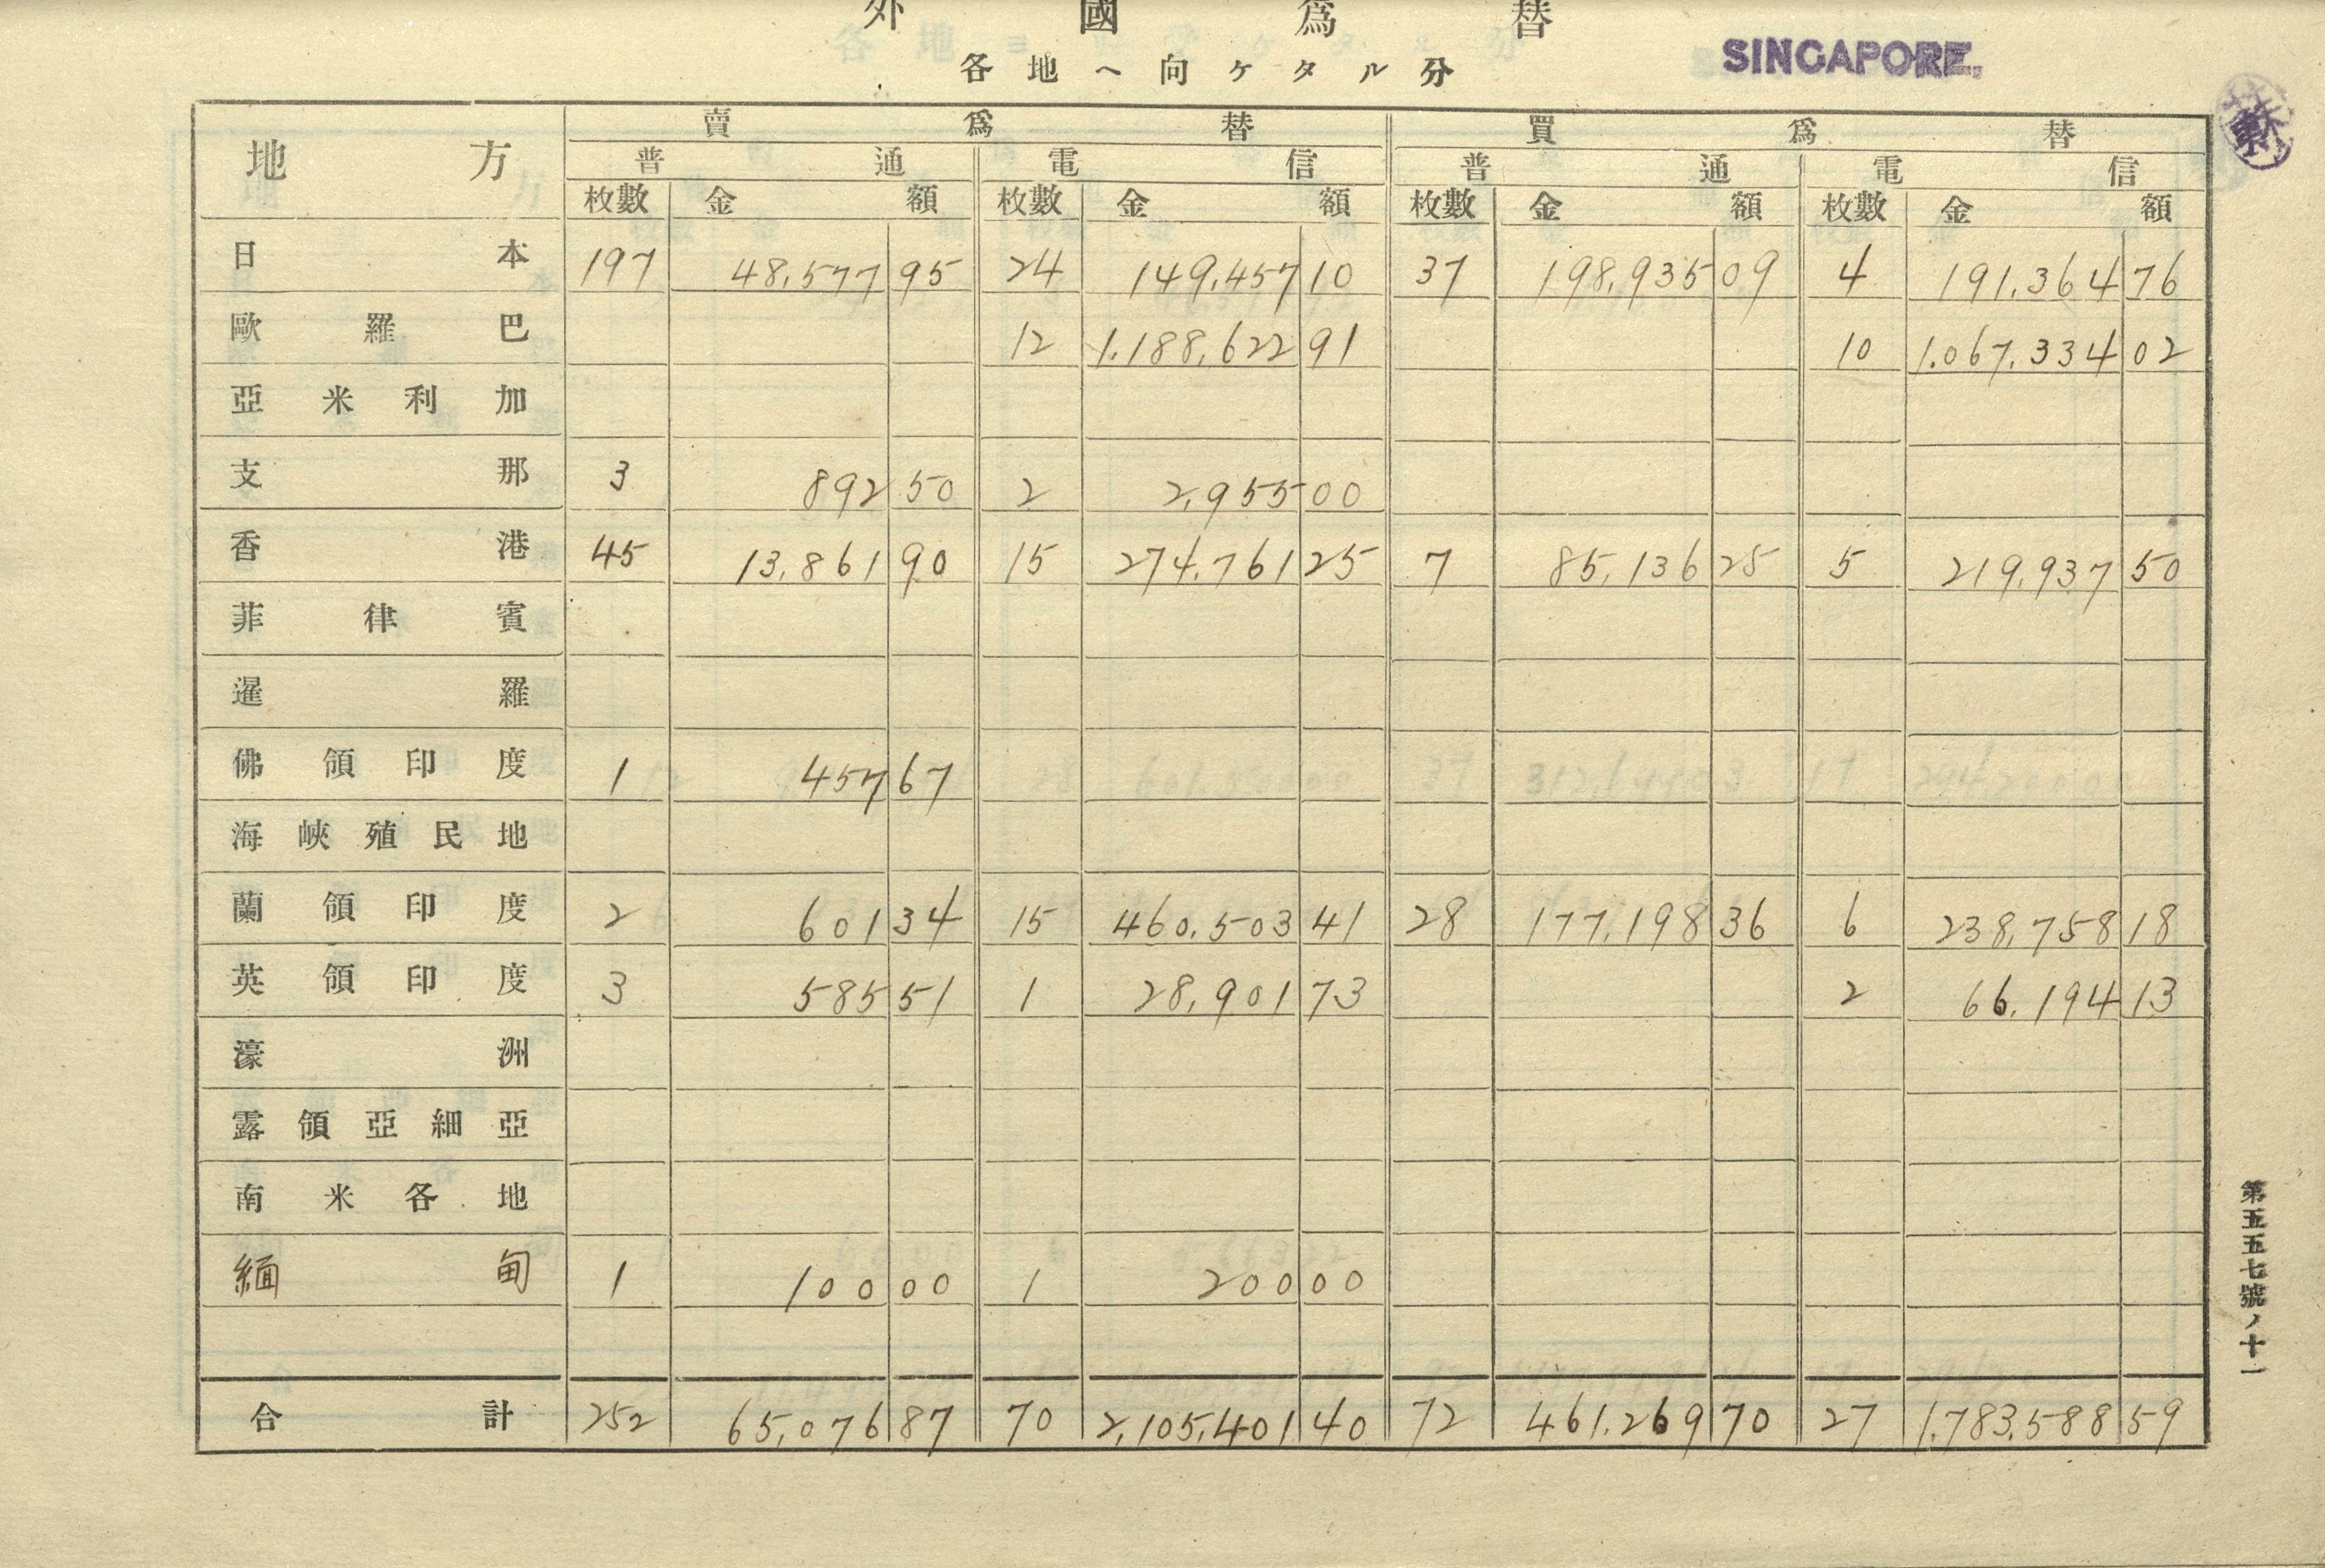 外國為替
各地へ向ケタル分
SINGAPORE.
地方 賣為替 買為替
普通 電信 普通 電信
枚數 金額 枚數 金額 枚數 金額 枚數 金額
日本 197 48,577 95 24 149,457 10 37 198,935 09 4 191,364 76
歐羅巴 12 1,188,622 91 10 1,067,334 02
亞米利加
支那 3 892 50 2 2,955 00
香港 45 13,861 90 15 274,761 25 7 85,136 25 5 219,937 50
菲律賓
暹羅
佛領印度 1 457 67
海峽殖民地
蘭領印度 2 601 34 15 460,503 41 28 177,198 36 6 238,758 18
英領印度 3 585 51 1 28,901 73 2 66,194 13
濠洲
露領亞細亞
南米各地
緬甸 1 100 00 1 200 00
合計 252 65,076 87 70 2,105,401 40 72 461,269 70 27 1,783,588 59
第五五七號ノ十一